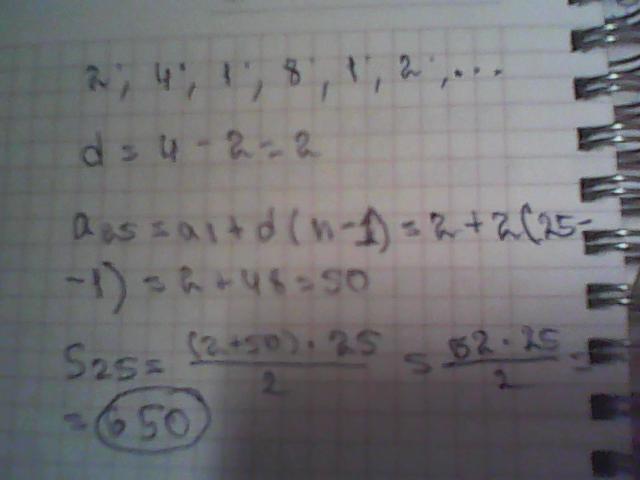 2; 4; 1; 8; 1; 2; ...
d = 4 - 2 = 2
a25 = a1 + d(n-1) = 2 + 2(25-
-1) = 2 + 48 = 50
S25 = (2+50)·25/2 = 52·25/2 =
= 650